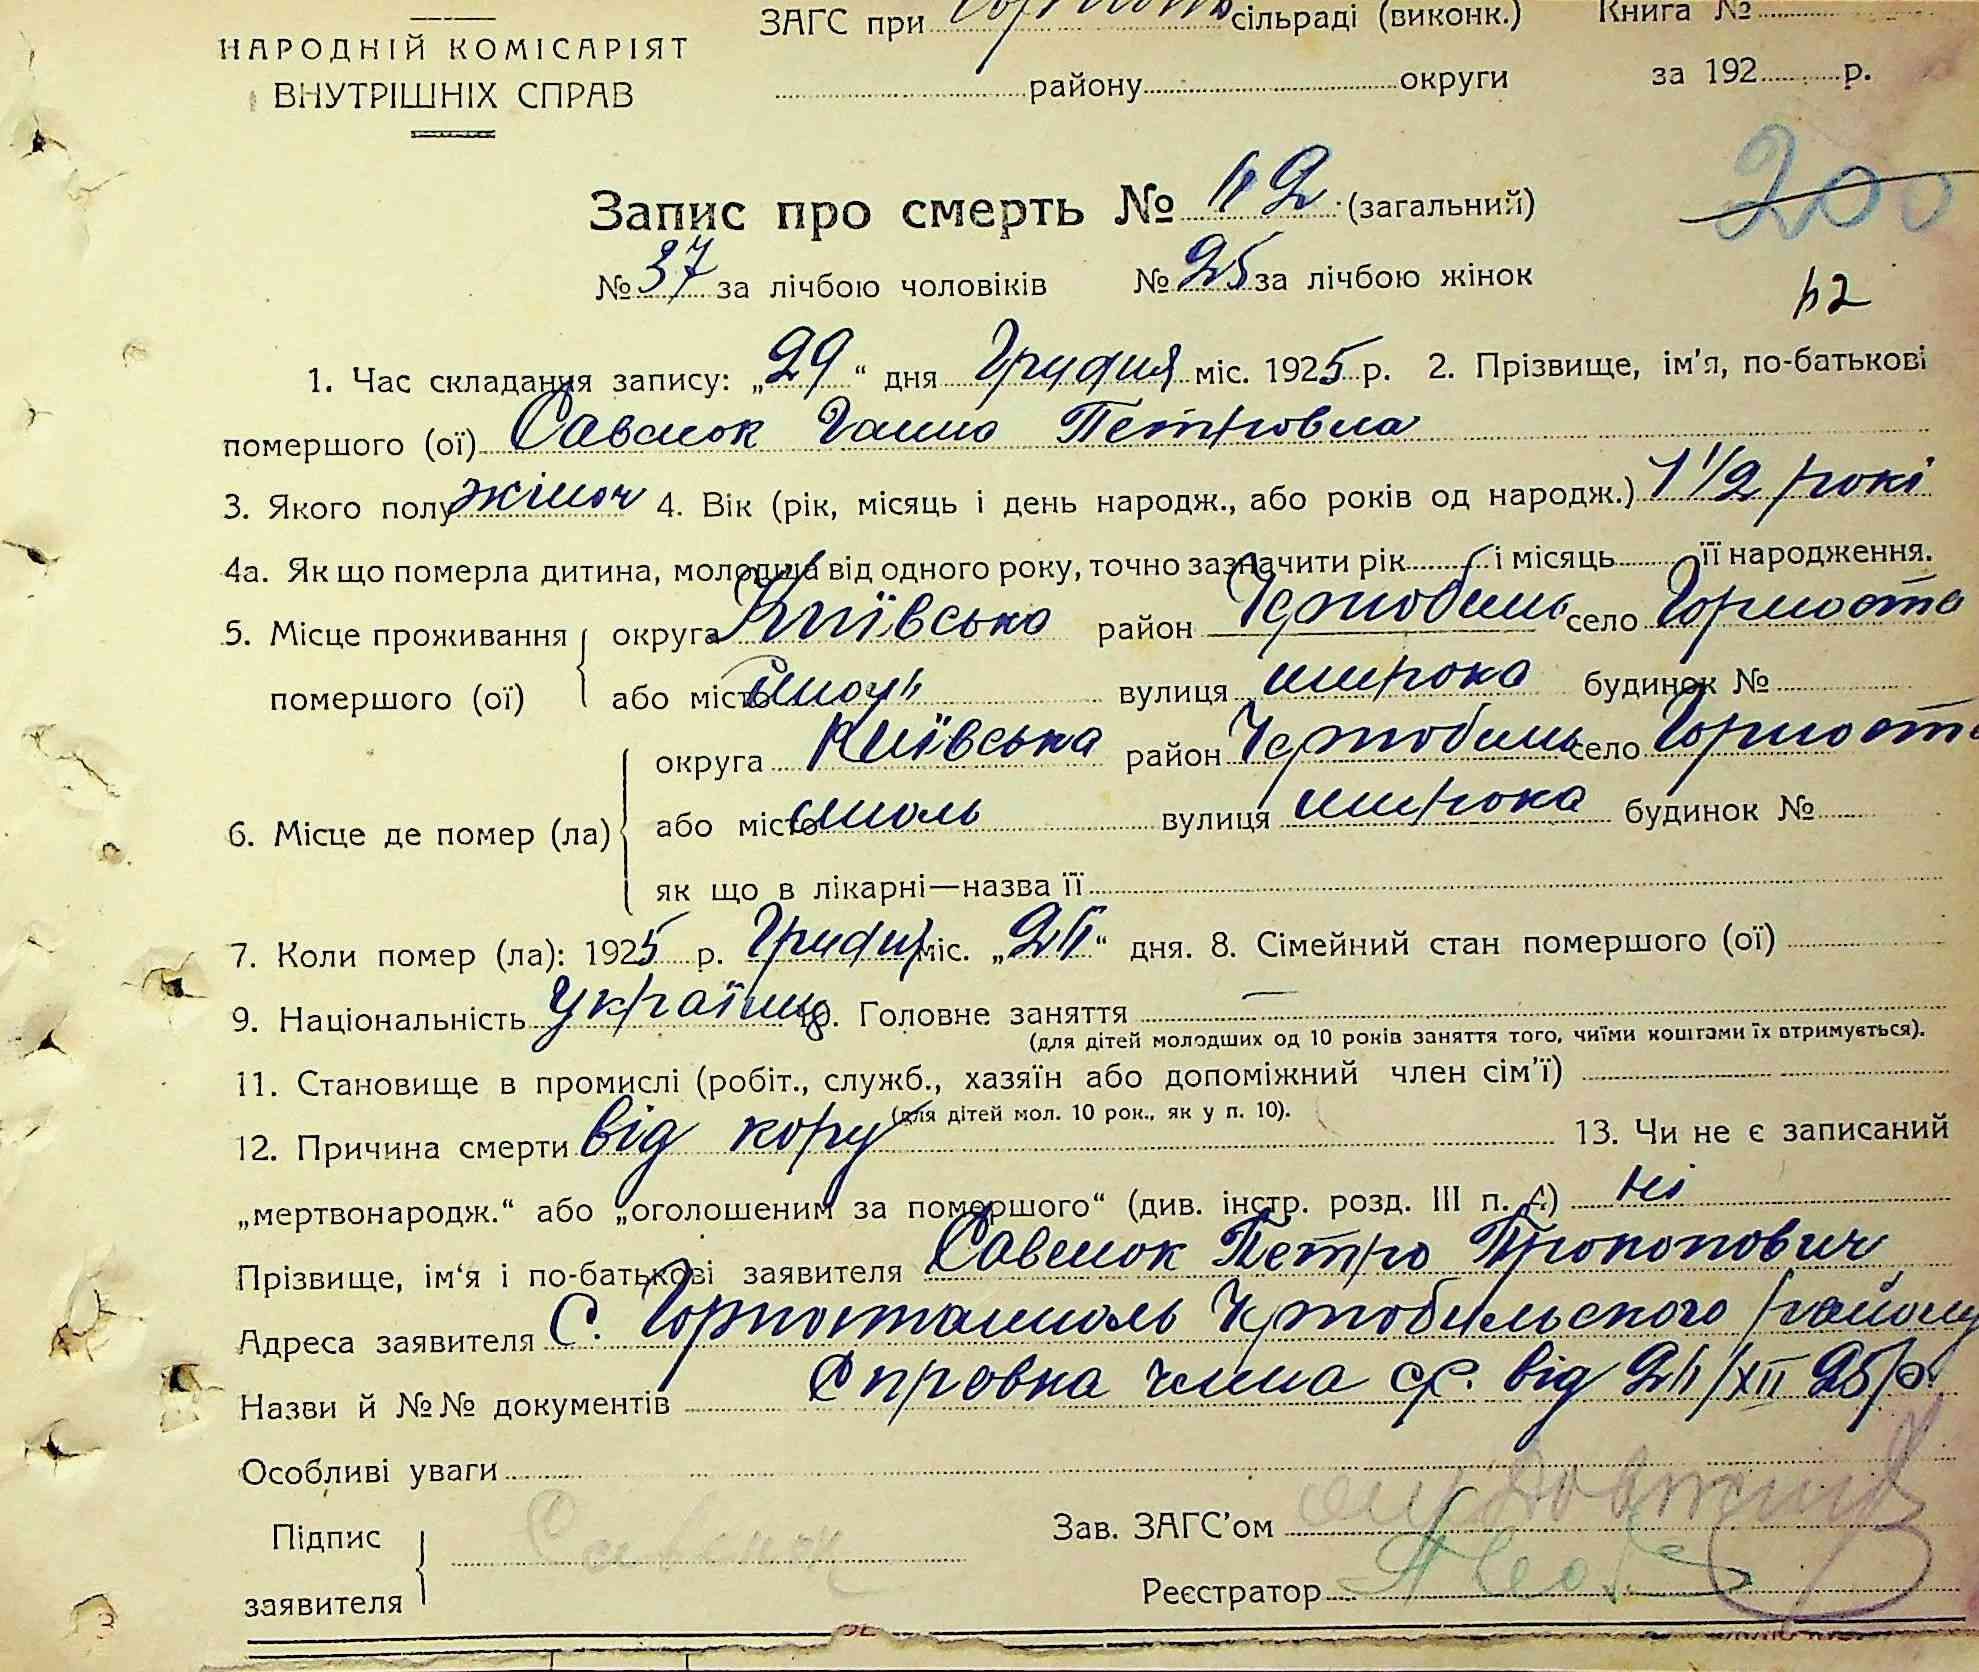 НАРОДНІЙ КОМІСАРІЯТ
ВНУТРІШНІХ СПРАВ
ЗАГС при сільраді (виконк.) Книга №
району округи за 192 р.
200
Запис про смерть № 62 (загальний)
№ 37 за лічбою чоловіків № 25 за лічбою жінок
62
1. Час складання запису: „29“ дня Грудня міс. 1925 р. 2. Прізвище, ім'я, по-батькові
помершого (ої) Савенок Ганна Петровна
3. Якого полу жіноч 4. Вік (рік, місяць і день народж., або років од народж.) 1 1/2 рокі
4а. Як що померла дитина, молодша від одного року, точно зазначити рік і місяць її народження.
5. Місце проживання помершого (ої) округа Київська район Чорнобиль село Горноста
або місто вулиця широка будинок №
6. Місце де помер (ла) округа Київська район Чорнобиль село Горност
або місто вулиця широка будинок №
як що в лікарні—назва її
7. Коли помер (ла): 1925 р. Грудня міс. „26“ дня. 8. Сімейний стан помершого (ої)
9. Національність україн 10. Головне заняття —
(для дітей молодших од 10 років заняття того, чиїми коштами їх втримується).
11. Становище в промислі (робіт., служб., хазяїн або допоміжний член сім'ї)
(для дітей мол. 10 рок., як у п. 10).
12. Причина смерти від кору 13. Чи не є записаний
„мертвонародж.“ або „оголошеним за помершого“ (див. інстр. розд. III п. 4) ні
Прізвище, ім'я і по-батькові заявителя Савенок Петро Прокопович
Адреса заявителя С. Горностайполь Чорнобильского району
Назви й №№ документів Справка члена с/с. від 26/XII 25 р.
Особливі уваги
Підпис заявителя Савенок
Зав. ЗАГС'ом
Реєстратор